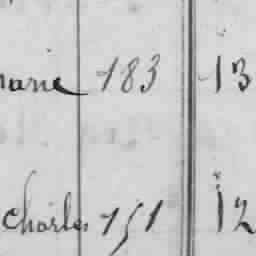 marie 183 13
Charles 151 12